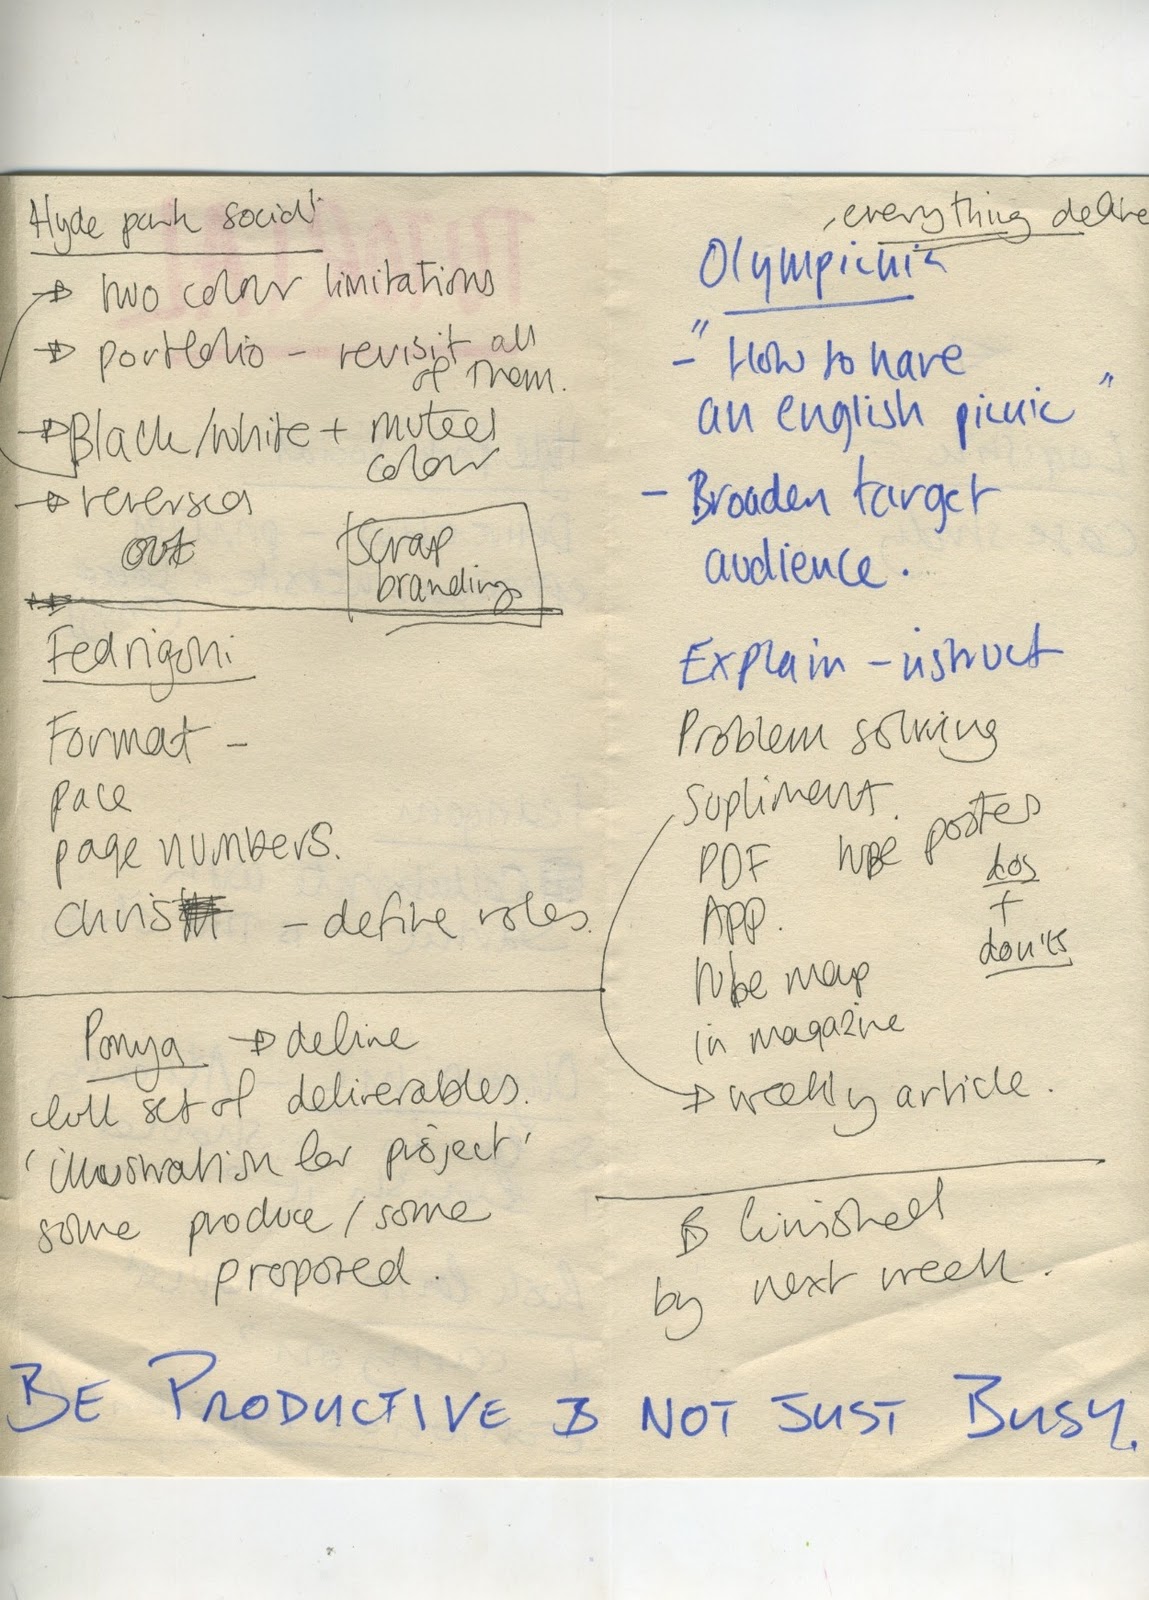 Hyde park social
→ two colour limitations
→ portfolio - revisit all
of them.
→ Black/white + muted
colour
→ reversed
out
scrap
branding
Fedrigoni
Format -
pace
page numbers.
Chris - define roles.
→ define
full set of deliverables.
'illustration for project'
some produce / some
proposed.
everything
Olympicnic
- "How to have
an english picnic"
- Broaden target
audience.
Explain - instruct
Problem solving
Supliment.
PDF
APP.
tube map
in magazine
→ weekly article.
tube postes
dos
+
don'ts
finished
by next week.
BE PRODUCTIVE & NOT JUST BUSY.